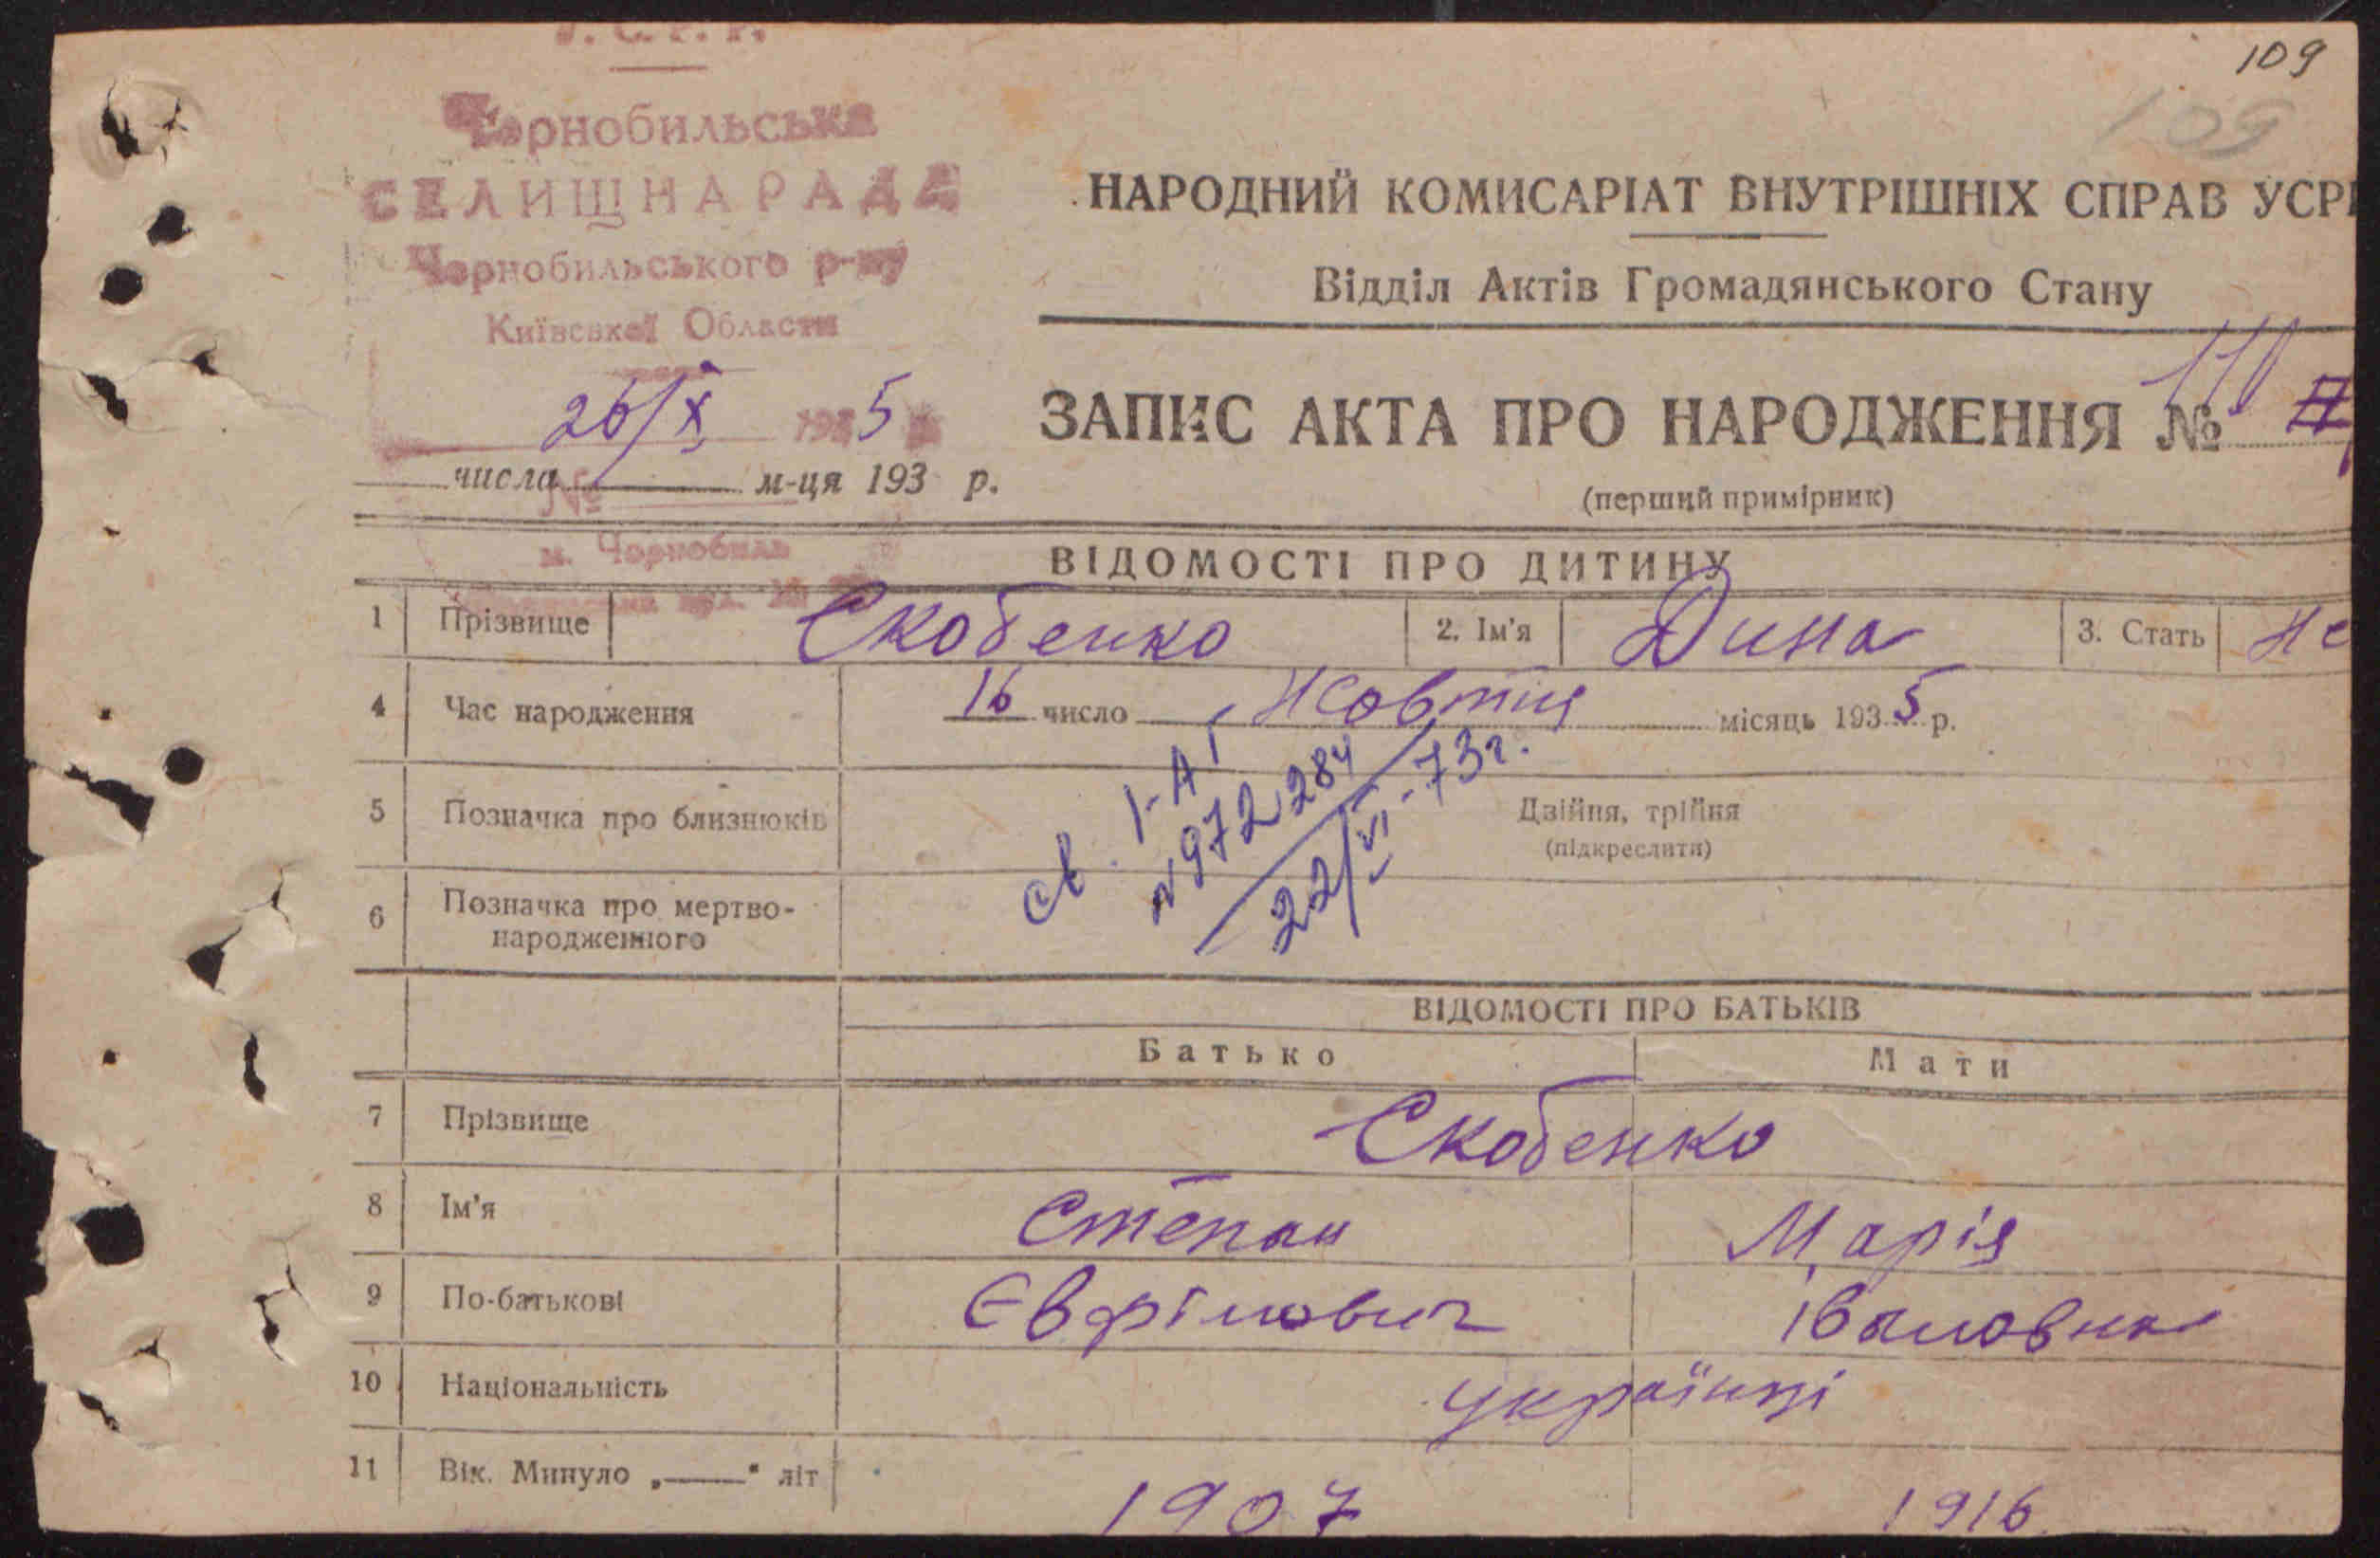 109
109
У. С. Р. Р.
Чорнобильська
СЕЛИЩНА РАДА
Чорнобильського р-ну
Київської Области
26/X 1935
числа м-ця 193 р.
№
м. Чорнобиль
НАРОДНИЙ КОМИСАРІАТ ВНУТРІШНІХ СПРАВ УСРР
Відділ Актів Громадянського Стану
ЗАПИС АКТА ПРО НАРОДЖЕННЯ № 110
(перший примірник)
ВІДОМОСТІ ПРО ДИТИНУ
1 Прізвище Скобенко 2. Ім'я Дина 3. Стать
4 Час народження 16 число Жовтня місяць 1935 р.
5 Позначка про близнюків Двійня, трійня
(підкреслити)
св. І-АГ
№972284
22/VI-73г.
6 Позначка про мертво-
народженного
ВІДОМОСТІ ПРО БАТЬКІВ
Батько Мати
7 Прізвище Скобенко
8 Ім'я Степан Марія
9 По-батькові Євфімович Івановна
10 Національність українці
11 Вік. Минуло „——“ літ 1907 1916